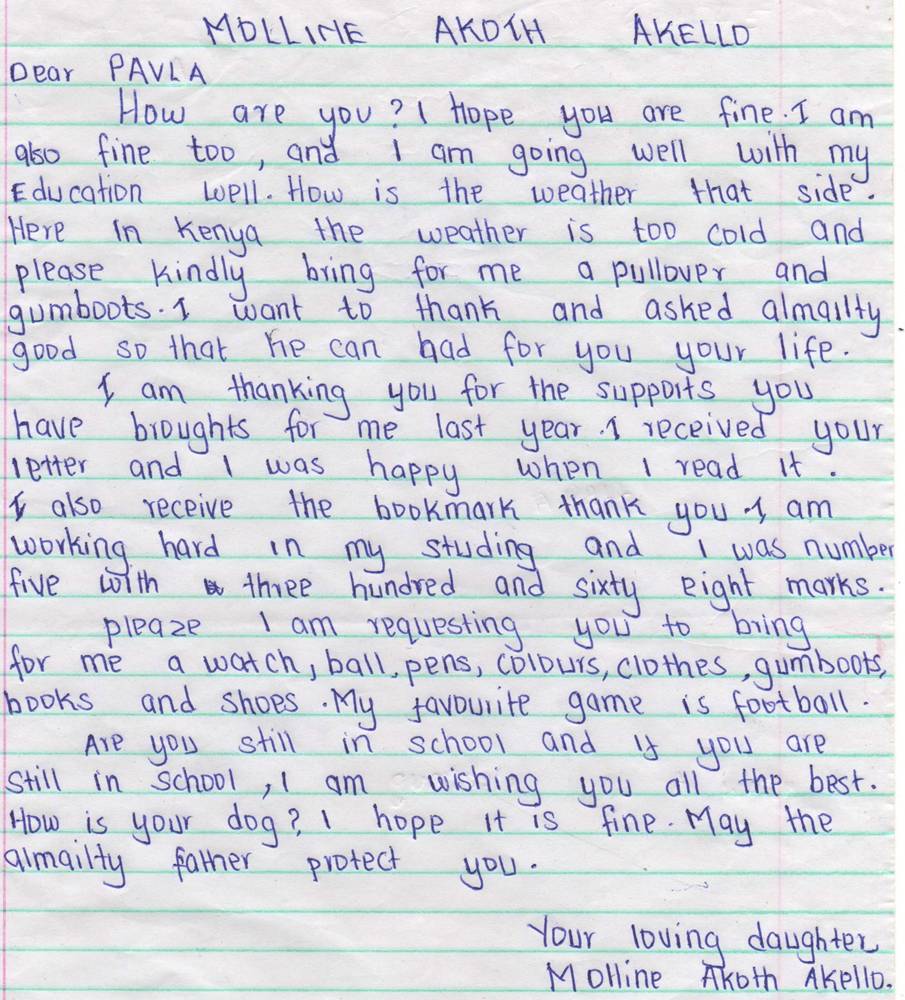 MOLLINE AKOTH AKELLO
Dear PAVLA
How are you? I hope you are fine. I am
also fine too, and I am going well with my
Education well. How is the weather that side.
Here in Kenya the weather is too cold and
please kindly bring for me a pullover and
gumboots. I want to thank and asked almailty
good so that he can had for you your life.
I am thanking you for the supports you
have broughts for me last year. I received your
letter and I was happy when I read it.
I also receive the bookmark thank you. I am
working hard in my studing and I was number
five with three hundred and sixty eight marks.
pleaze I am requesting you to bring
for me a watch, ball, pens, colours, clothes, gumboots,
books and shoes. My favourite game is football.
Are you still in school and if you are
still in school, I am wishing you all the best.
How is your dog? I hope it is fine. May the
almailty father protect you.
Your loving daughter
Molline Akoth Akello.